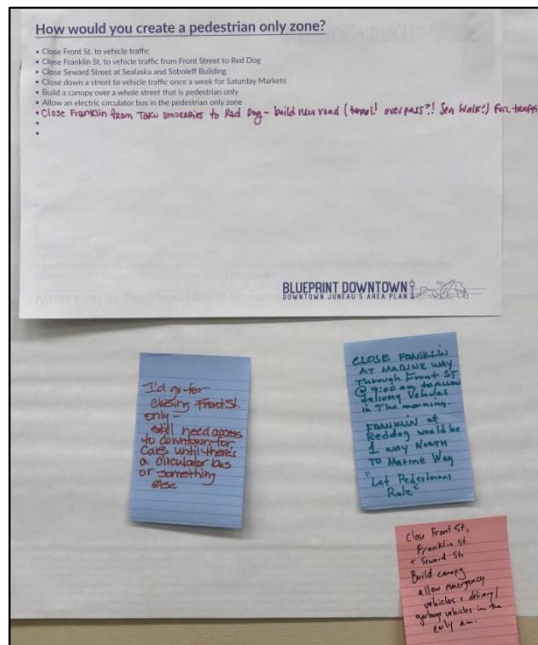 How would you create a pedestrian only zone?
• Close Front St. to vehicle traffic
• Close Franklin St. to vehicle traffic from Front Street to Red Dog
• Close Seward Street at Sealaska and Soboleff Building
• Close down a street to vehicle traffic once a week for Saturday Markets
• Build a canopy over a whole street that is pedestrian only
• Allow an electric circulator bus in the pedestrian only zone
• Close Franklin from Taku smokeries to Red Dog - build new road (tunnel! overpass?! Sea Walk?) For traffic
•
•
BLUEPRINT DOWNTOWN
DOWNTOWN JUNEAU'S AREA PLAN
I'd go for
closing Front St.
only -
still need access
to downtown for
cars until there's
a circulator bus
or something
else
CLOSE FRANKLIN
AT MARINE WAY
Through Front ST
@ 9:00 am to allow
delivery Vehicles
in The morning.
FRANKLIN at
Reddog would be
1 way North
TO Marine Way
"Let Pedestrians
Rule"
Close Front St,
Franklin St.
& Seward St.
Build canopy
allow emergency
vehicles & delivery/
garbage vehicles in the
early am.